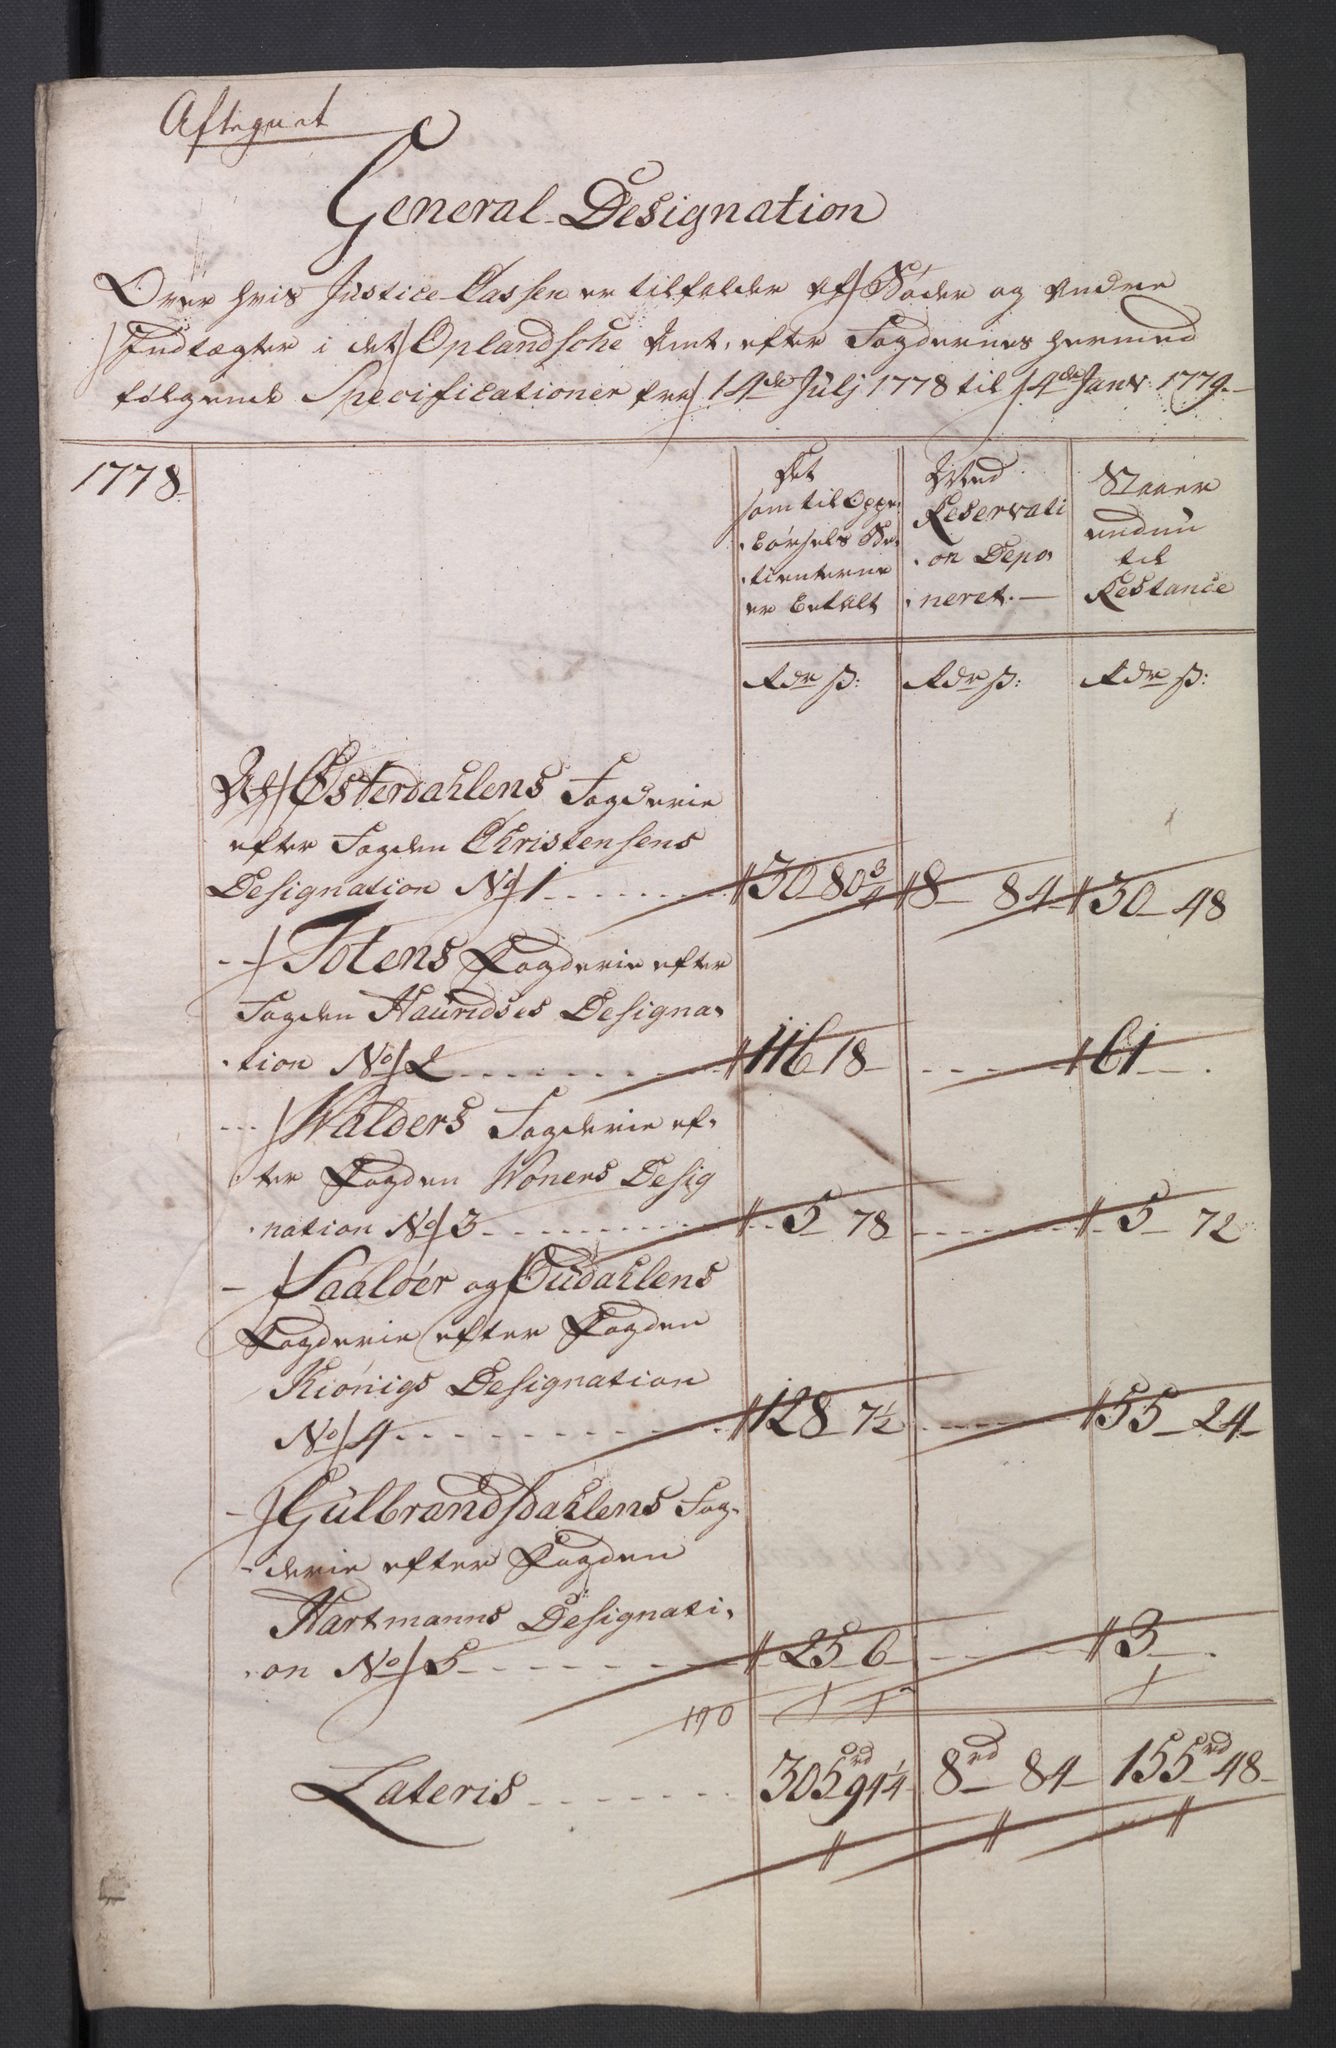 Aftegnet
General Designation
Over hvis Justice Cassen er tilfalden af Bøder og Andre
Indtægter i det Oplandsche Amt, efter Fogdernes hermed
følgende Specificationer fra 14de Julj 1778 til 14de Janv: 1779.
1778
Det
som til Oppe
børsels Be
tienterne
er betalt
Med
Reservati
on Depo
neret.
Staaer
endnu
til
Restance
Rdr ß: Rdr ß: Rdr ß:
Af Østerdahlens Fogderie
efter Fogden Christensens
Designation No 1 30 80 3/4 8 84 30 48
- Totens Fogderie efter
Fogden Hauridses Designa
tion No 2 116 18 61
- Walders Fogderie ef
ter Fogden Woners Desig
nation No 3 5 78 5 72
- Saaløer og Oudahlens
Fogderie efter Fogden
Kiönigs Designation
No 4 128 7 1/2 55 24
- Gulbrandsdahlens Fog
derie efter Fogden
Hartmanns Designati
on No 5 25 6 3
190
Lateris 305rd 94 1/4 8rd 84 155rd 48